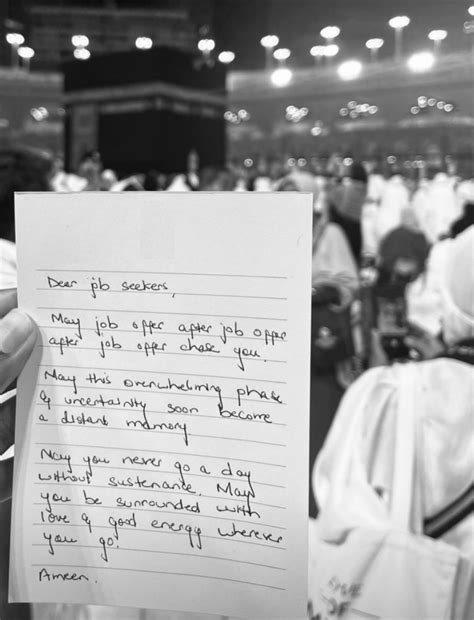 Dear job seekers,
May job offer after job offer
after job offer chase you.
May this overwhelming phase
of uncertainty soon become
a distant memory
May you never go a day
without sustenance. May
you be surrounded with
love & good energy wherever
you go.
Ameen.